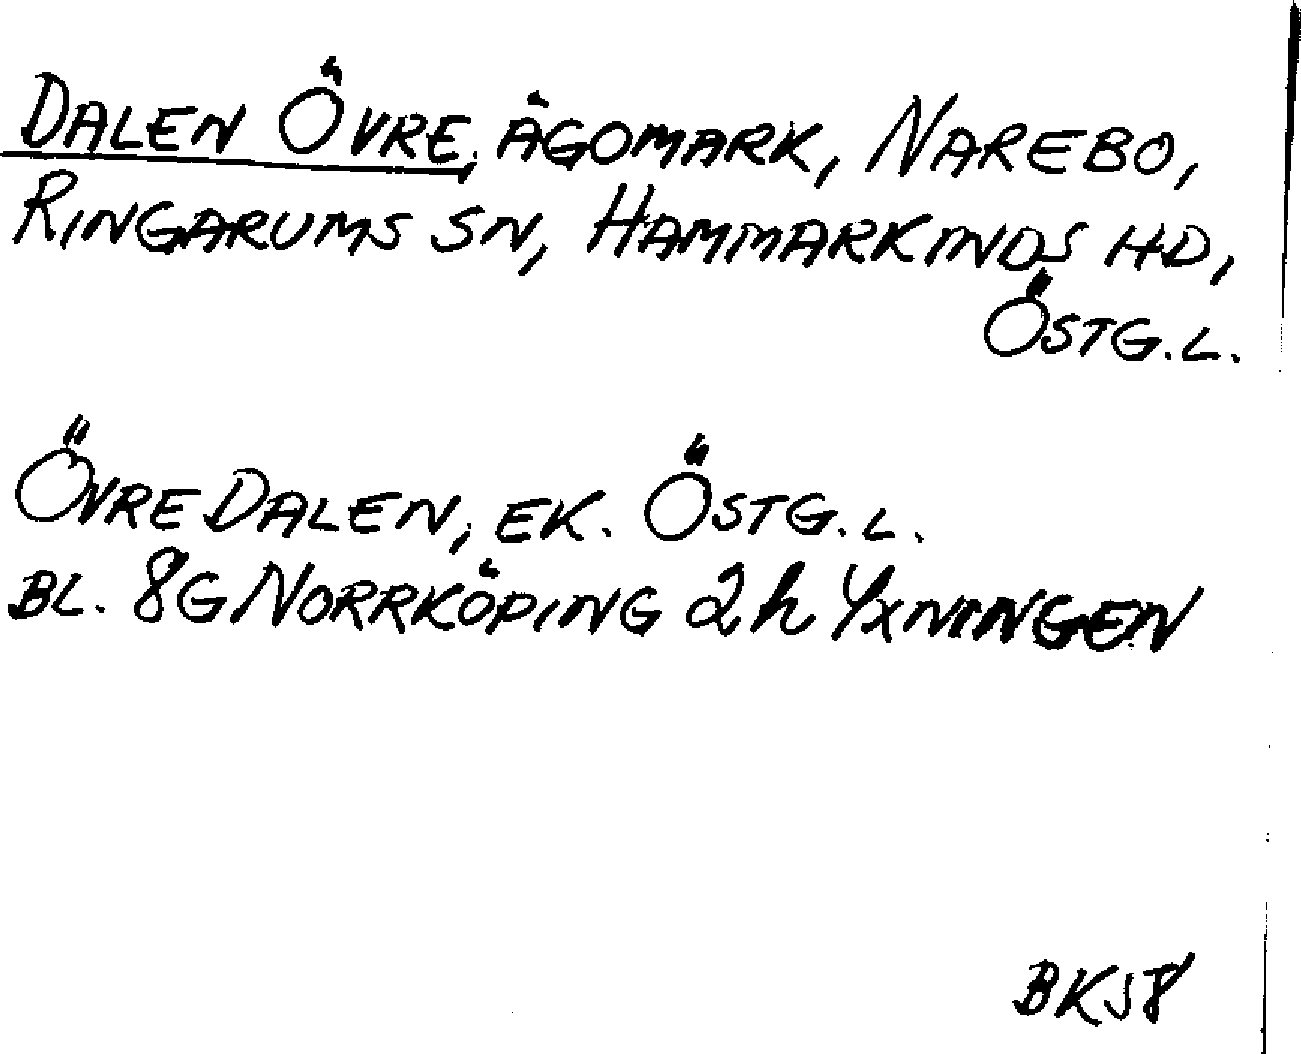 DALEN ÖVRE, ÄGOMARK, NAREBO,
RINGARUMS SN, HAMMARKINDS HD,
ÖSTG.L.
ÖVRE DALEN, EK. ÖSTG.L.
BL. 8G NORRKÖPING 2h YXNINGEN